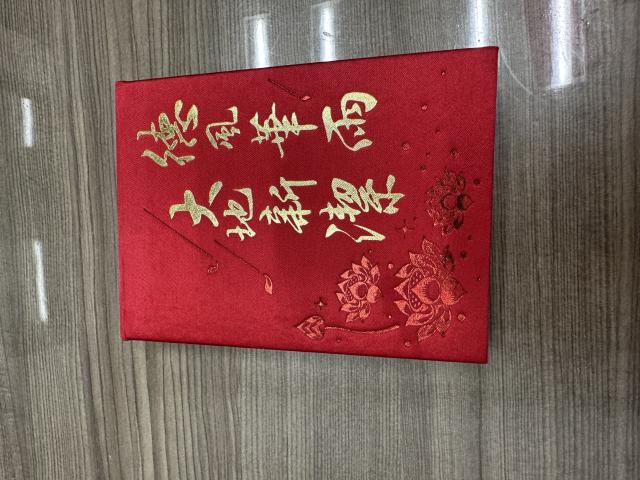 德風華雨
大地新潔